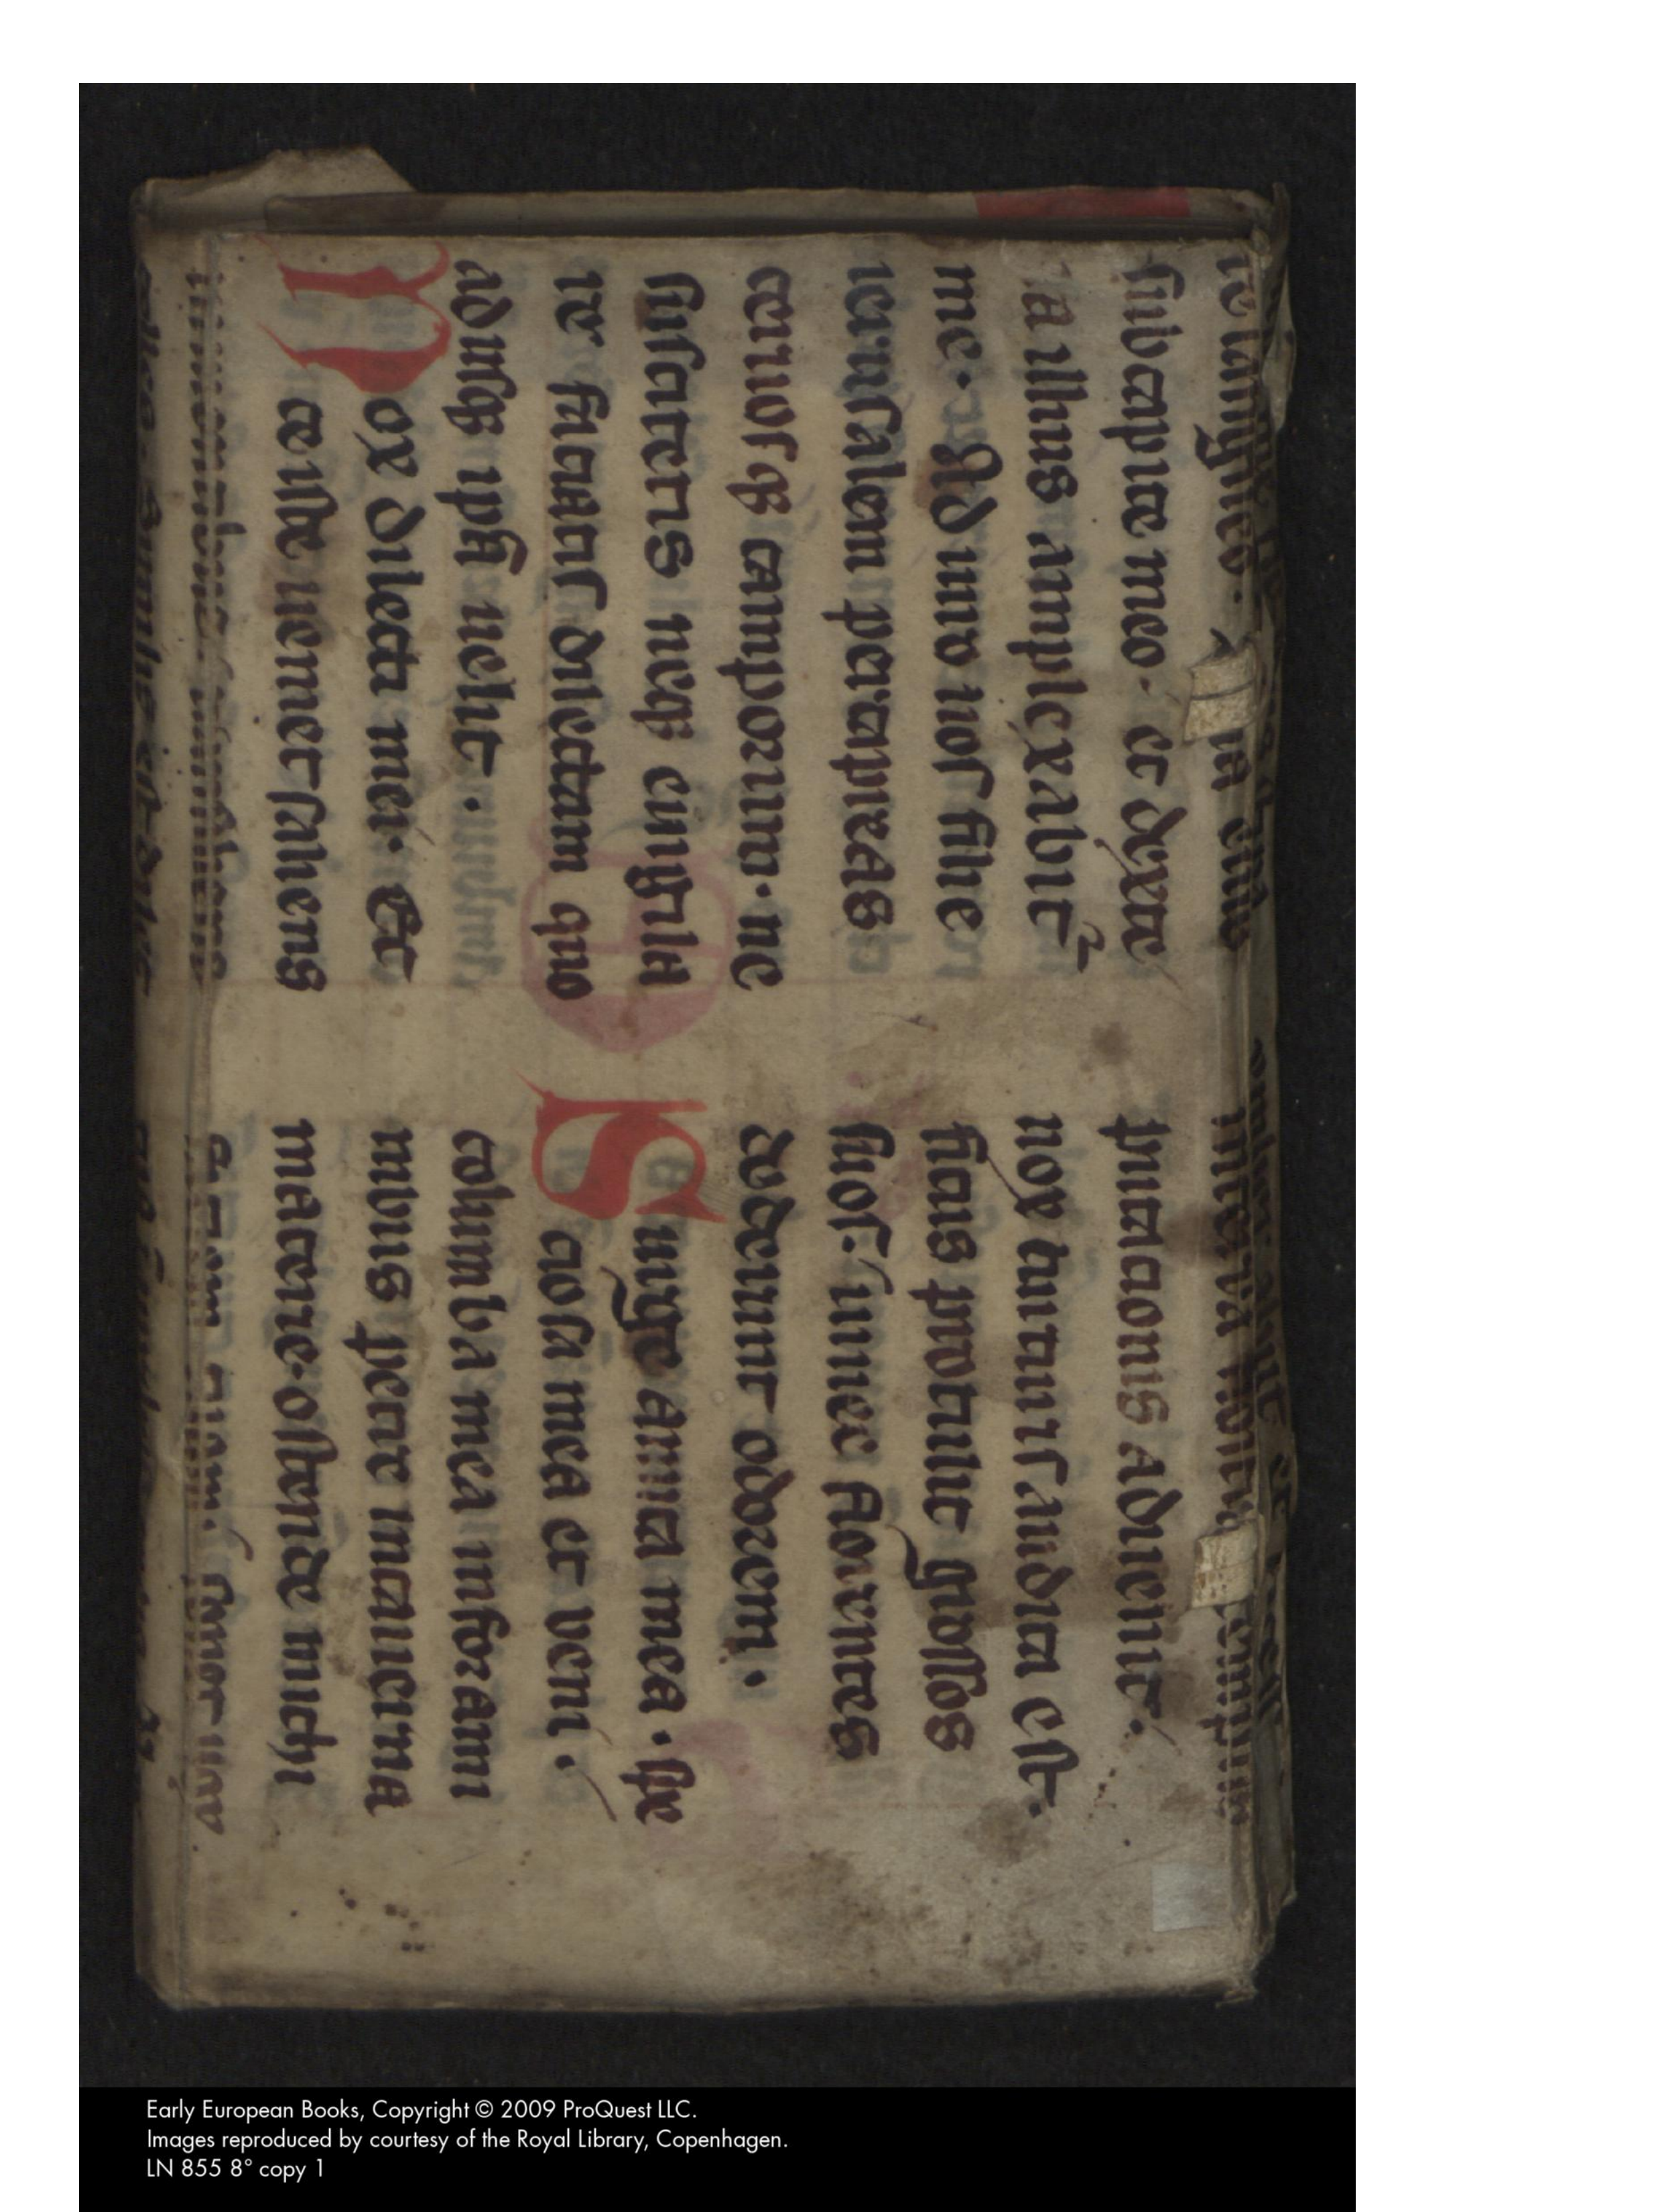 re langueo.
sub capite meo. et dexte
ra illius amplexabit᷑
me. Adiuro uos filie
ierusalem per capreas
ceruosqꝫ camporum. ne
suscitetis neqꝫ euigila
re faciatis dilectam quo
adusqꝫ ipsa uelit.
Vox dilecti mei. Ec
ce iste uenit saliens
putationis aduenit.
uox turturis audita est.
ficus protulit grossos
suos. uinee florentes
dederunt odorem.
Surge amica mea. spe
ciosa mea et veni.
columba mea in forami
nibus petre in cauerna
macerie. ostende michi
Early European Books, Copyright © 2009 ProQuest LLC.
Images reproduced by courtesy of the Royal Library, Copenhagen.
LN 855 8° copy 1